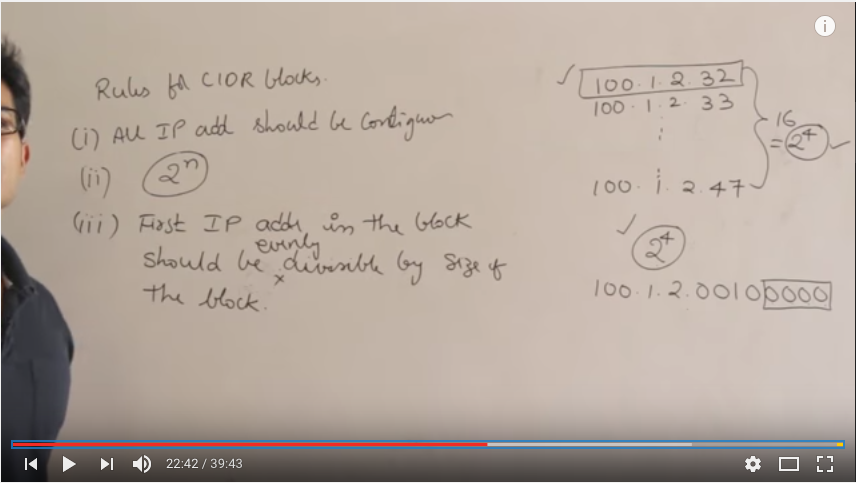 Rules for CIDR blocks.
(i) All IP add should be contiguous
(ii) 2^n
(iii) First IP addr in the block
should be evenly divisible by size of
the block.
100.1.2.32
100.1.2.33
100.1.2.47
16
= 2^4
2^4
100.1.2.00100000
22:42 / 39:43